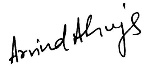 Arvind Ahuja